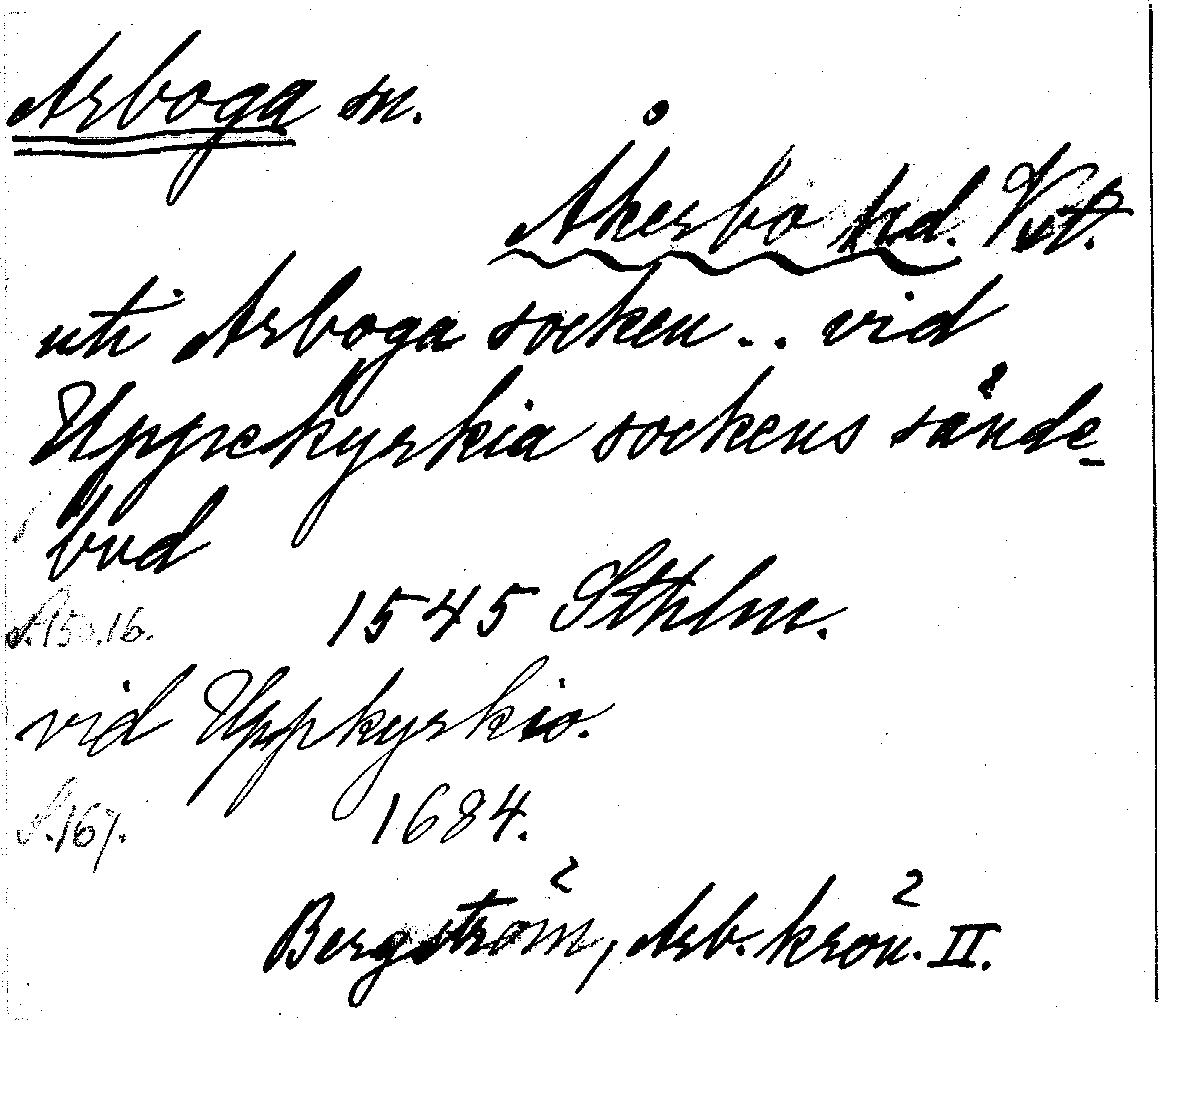 Arboga sn.
Åkerbo hd. Vstm.
uti Arboga socken .. vid
Uppekyrkia sockens sände-
bud
S. 150.16. 1545 Sthlm.
vid Uppkyrkio.
S. 167. 1684.
Bergström, Arb. krön. II.